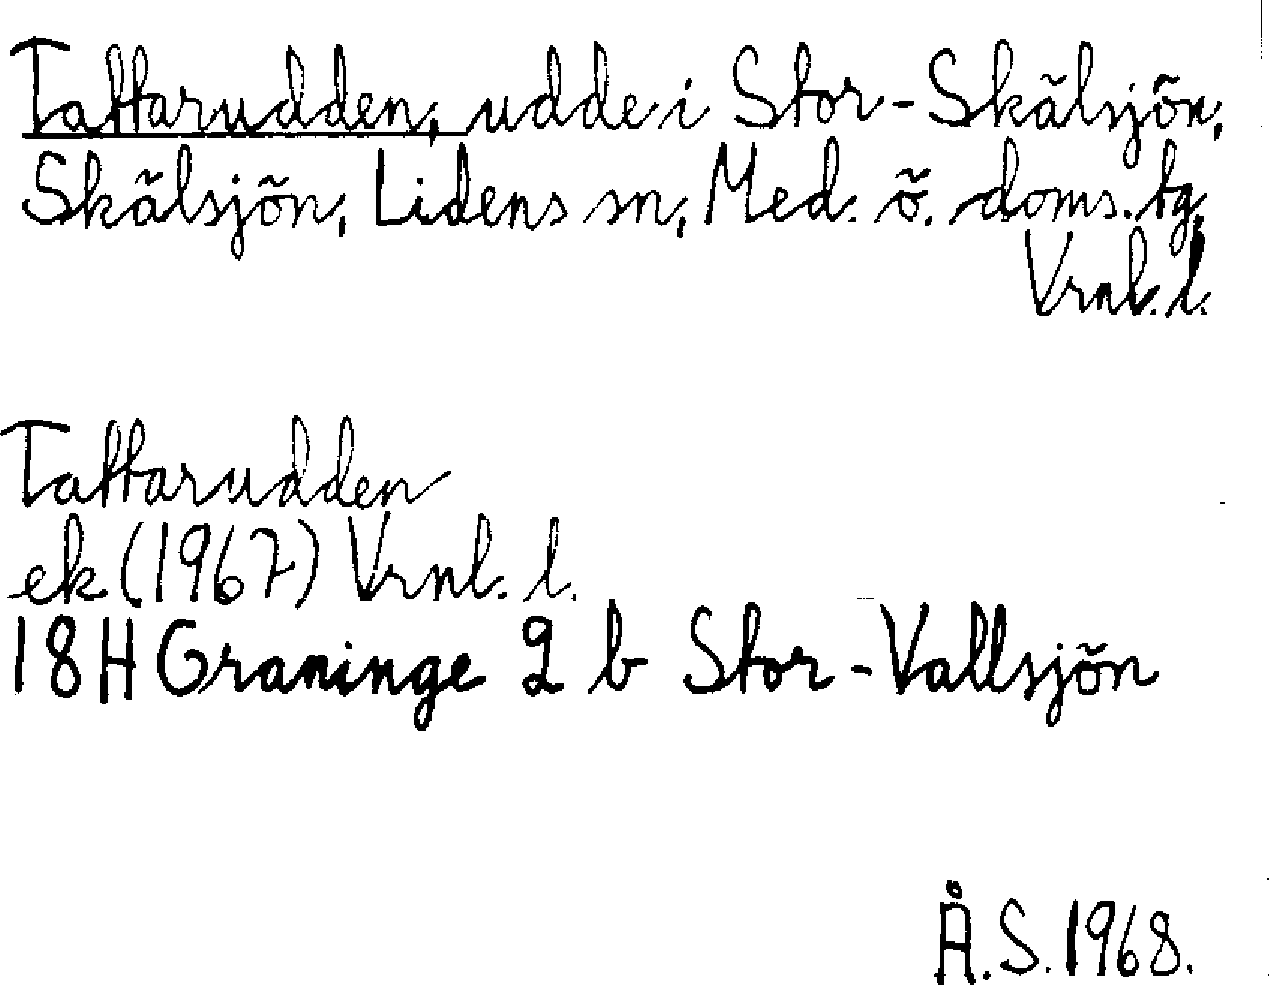 Tattarudden, udde i Stor-Skälsjön,
Skälsjön, Lidens sn, Med. ö. doms. tg,
Vrnl. l.
Tattarudden
ek (1967) Vrnl. l.
18H Graninge 2 b Stor-Vallsjön
Å.S. 1968.